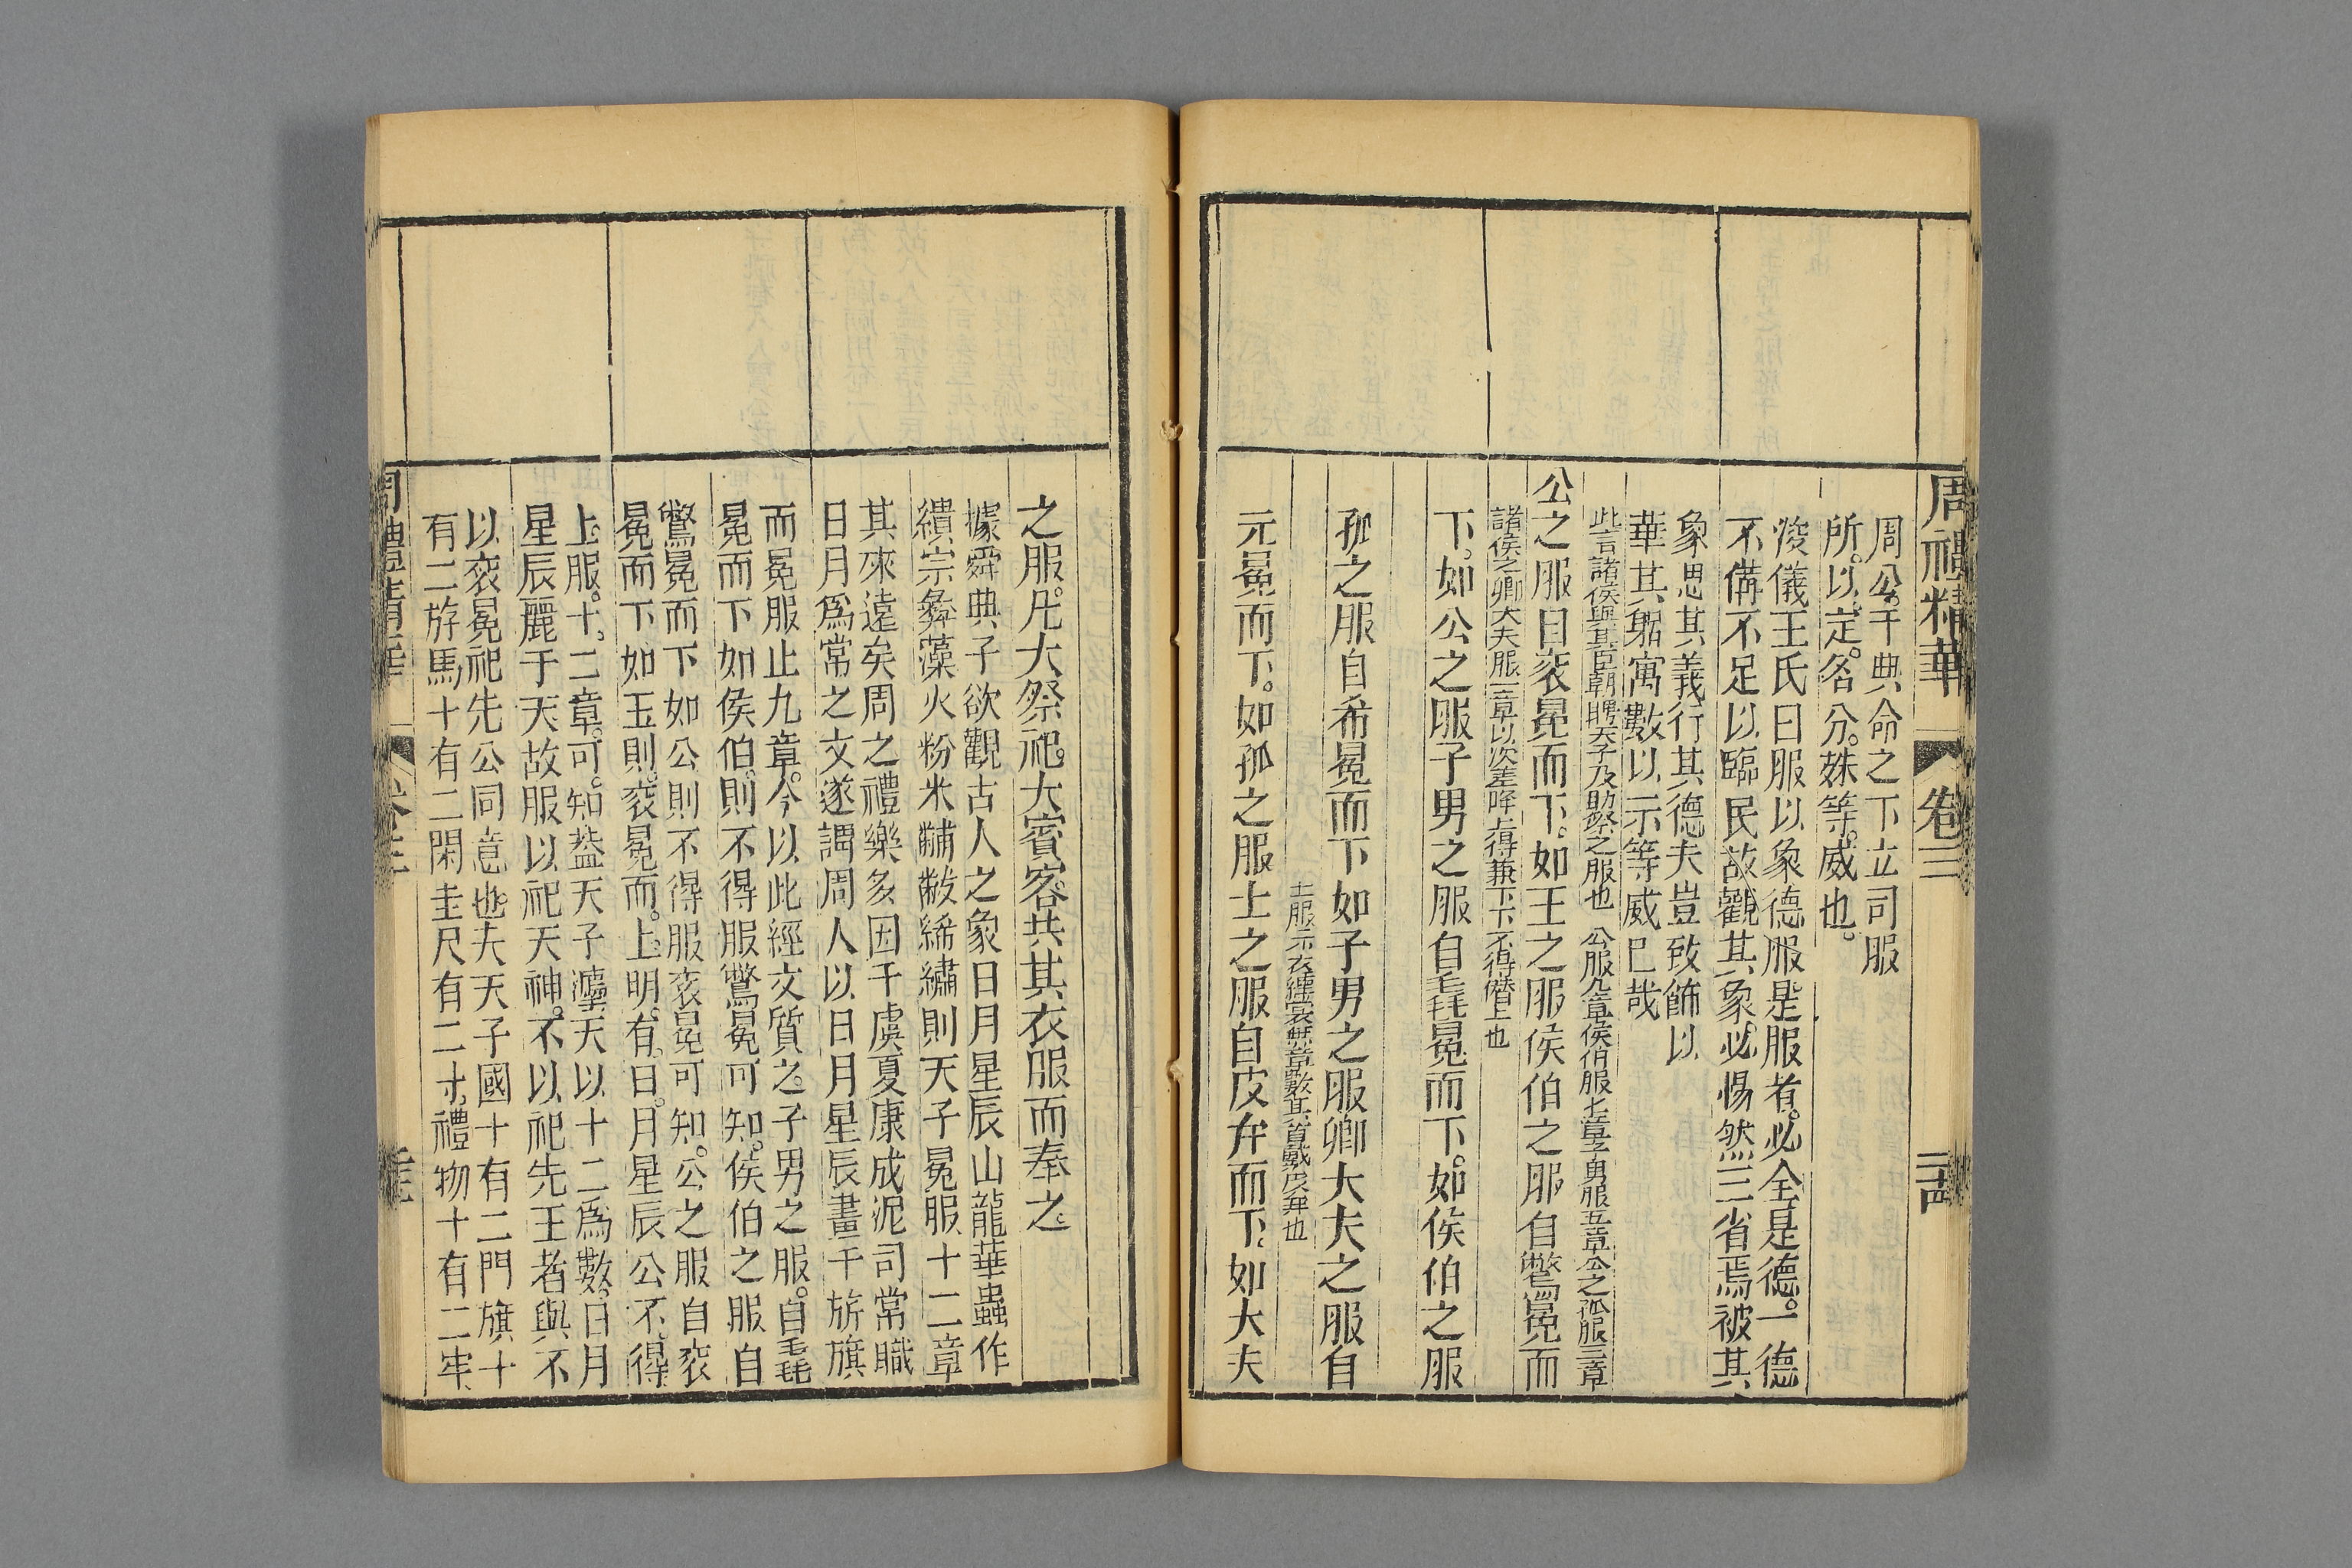 周禮精華
卷三
二十四
周公于典命之下立司服
所以定名分殊等威也
浚儀王氏曰服以象德服是服者必全是德一德
不備不足以臨民故觀其象必惕然三省焉被其
象思其義行其德夫豈致飾以
華其躬寓數以示等威已哉
此言諸侯與其臣朝聘天子及助祭之服也 公服九章侯伯服七章子男服五章公之孤服三章
公之服自袞冕而下如王之服侯伯之服自鷩冕而
諸侯之卿大夫服一章以次差降上得兼下下不得僭上也
下如公之服子男之服自毳冕而下如侯伯之服
孤之服自希冕而下如子男之服卿大夫之服自
士服示衣纁裳無章數其首戴皮弁也
元冕而下如孤之服士之服自皮弁而下如大夫
之服凡大祭祀大賓客共其衣服而奉之
據舜典子欲觀古人之象日月星辰山龍華蟲作
繢宗彝藻火粉米黼黻絺繡則天子冕服十二章
其來遠矣周之禮樂多因于虞夏康成泥司常職
日月爲常之文遂謂周人以日月星辰畫于旂旗
而冕服止九章今以此經文質之子男之服自毳
冕而下如侯伯則不得服鷩冕可知侯伯之服自
鷩冕而下如公則不得服袞冕可知公之服自袞
冕而下如王則袞冕而上明有日月星辰公不得
上服十二章可知葢天子灋天以十二爲數日月
星辰麗于天故服以祀天神不以祀先王者與不
以袞冕祀先公同意也夫天子國十有二門旗十
有二斿馬十有二閑圭尺有二寸禮物十有二牢
周禮精華
卷三